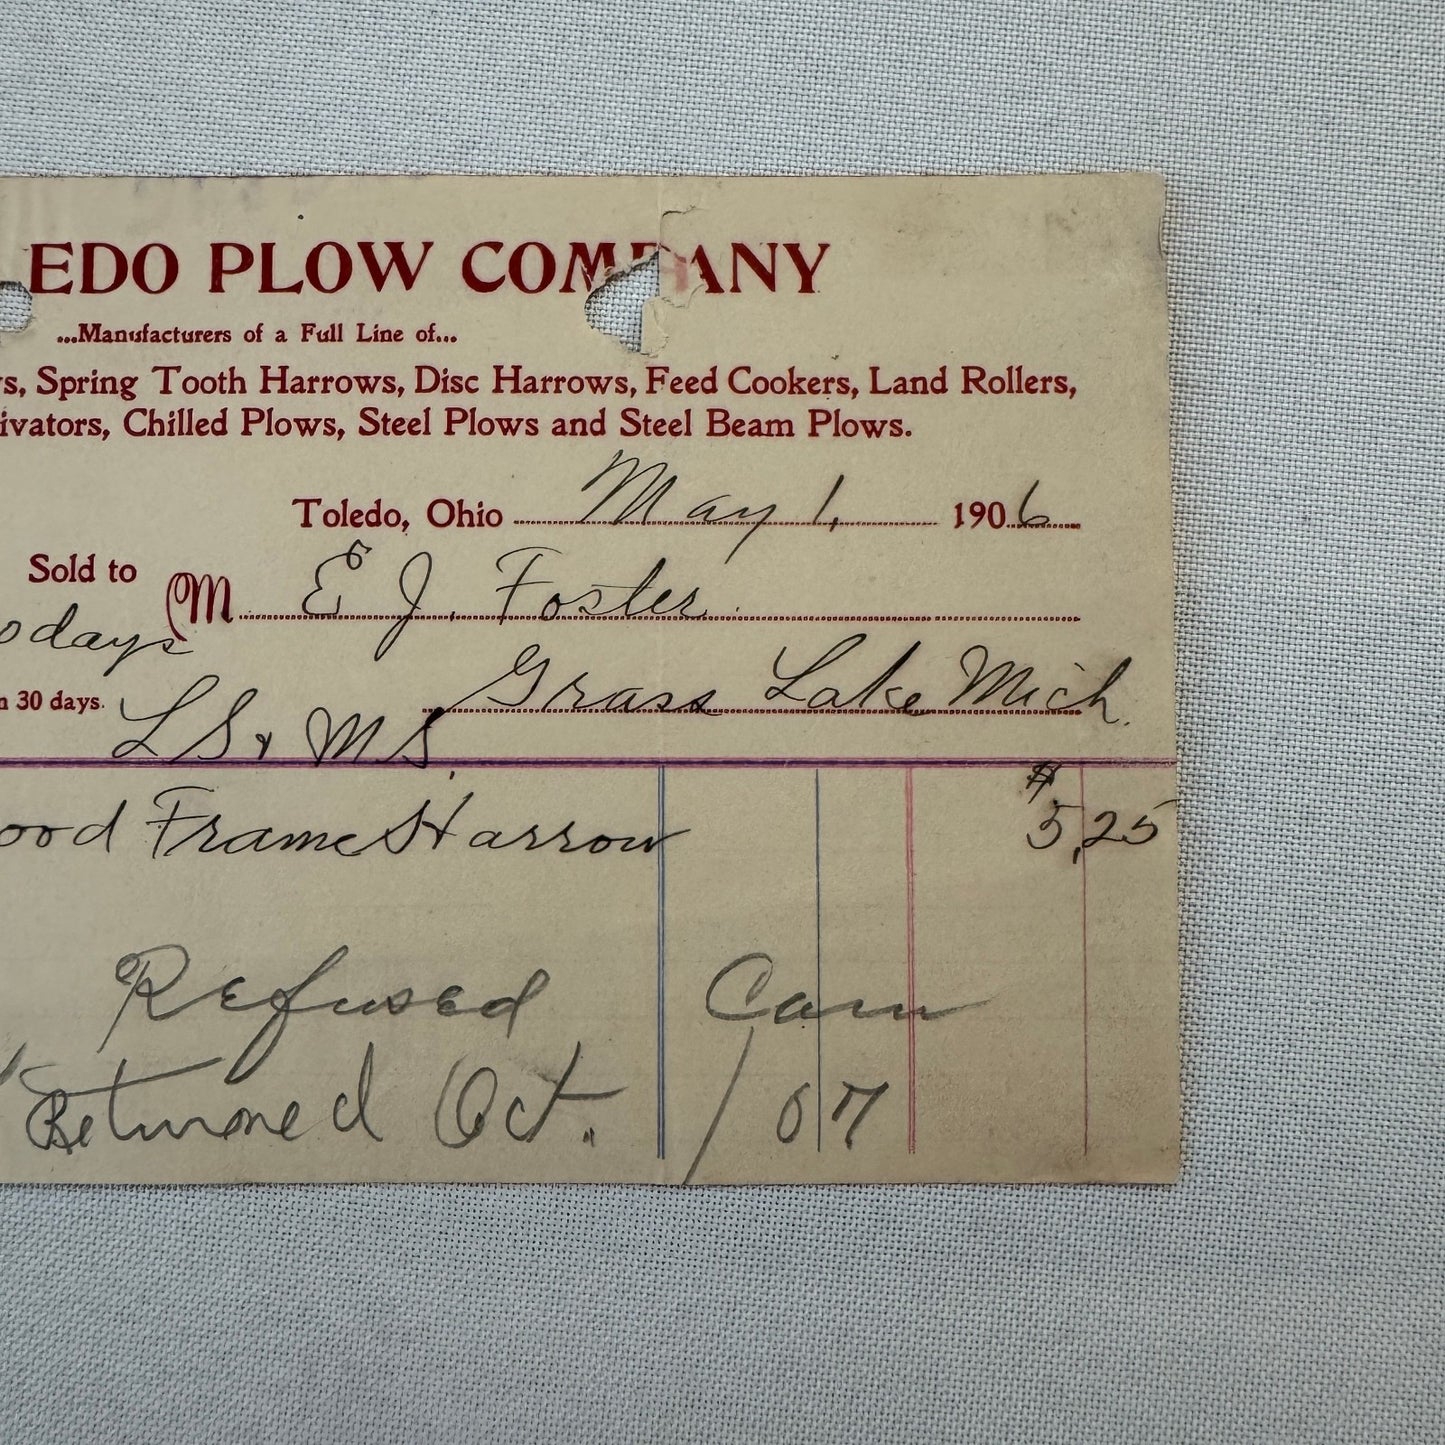 EDO PLOW COMPANY
...Manufacturers of a Full Line of...
s, Spring Tooth Harrows, Disc Harrows, Feed Cookers, Land Rollers,
ivators, Chilled Plows, Steel Plows and Steel Beam Plows.
Toledo, Ohio May 1, 1906
Sold to M E J. Foster
0 days
Grass Lake Mich.
n 30 days. L S & M S.
ood Frame Harrow $5,25
Refused
Returned Oct. / 07